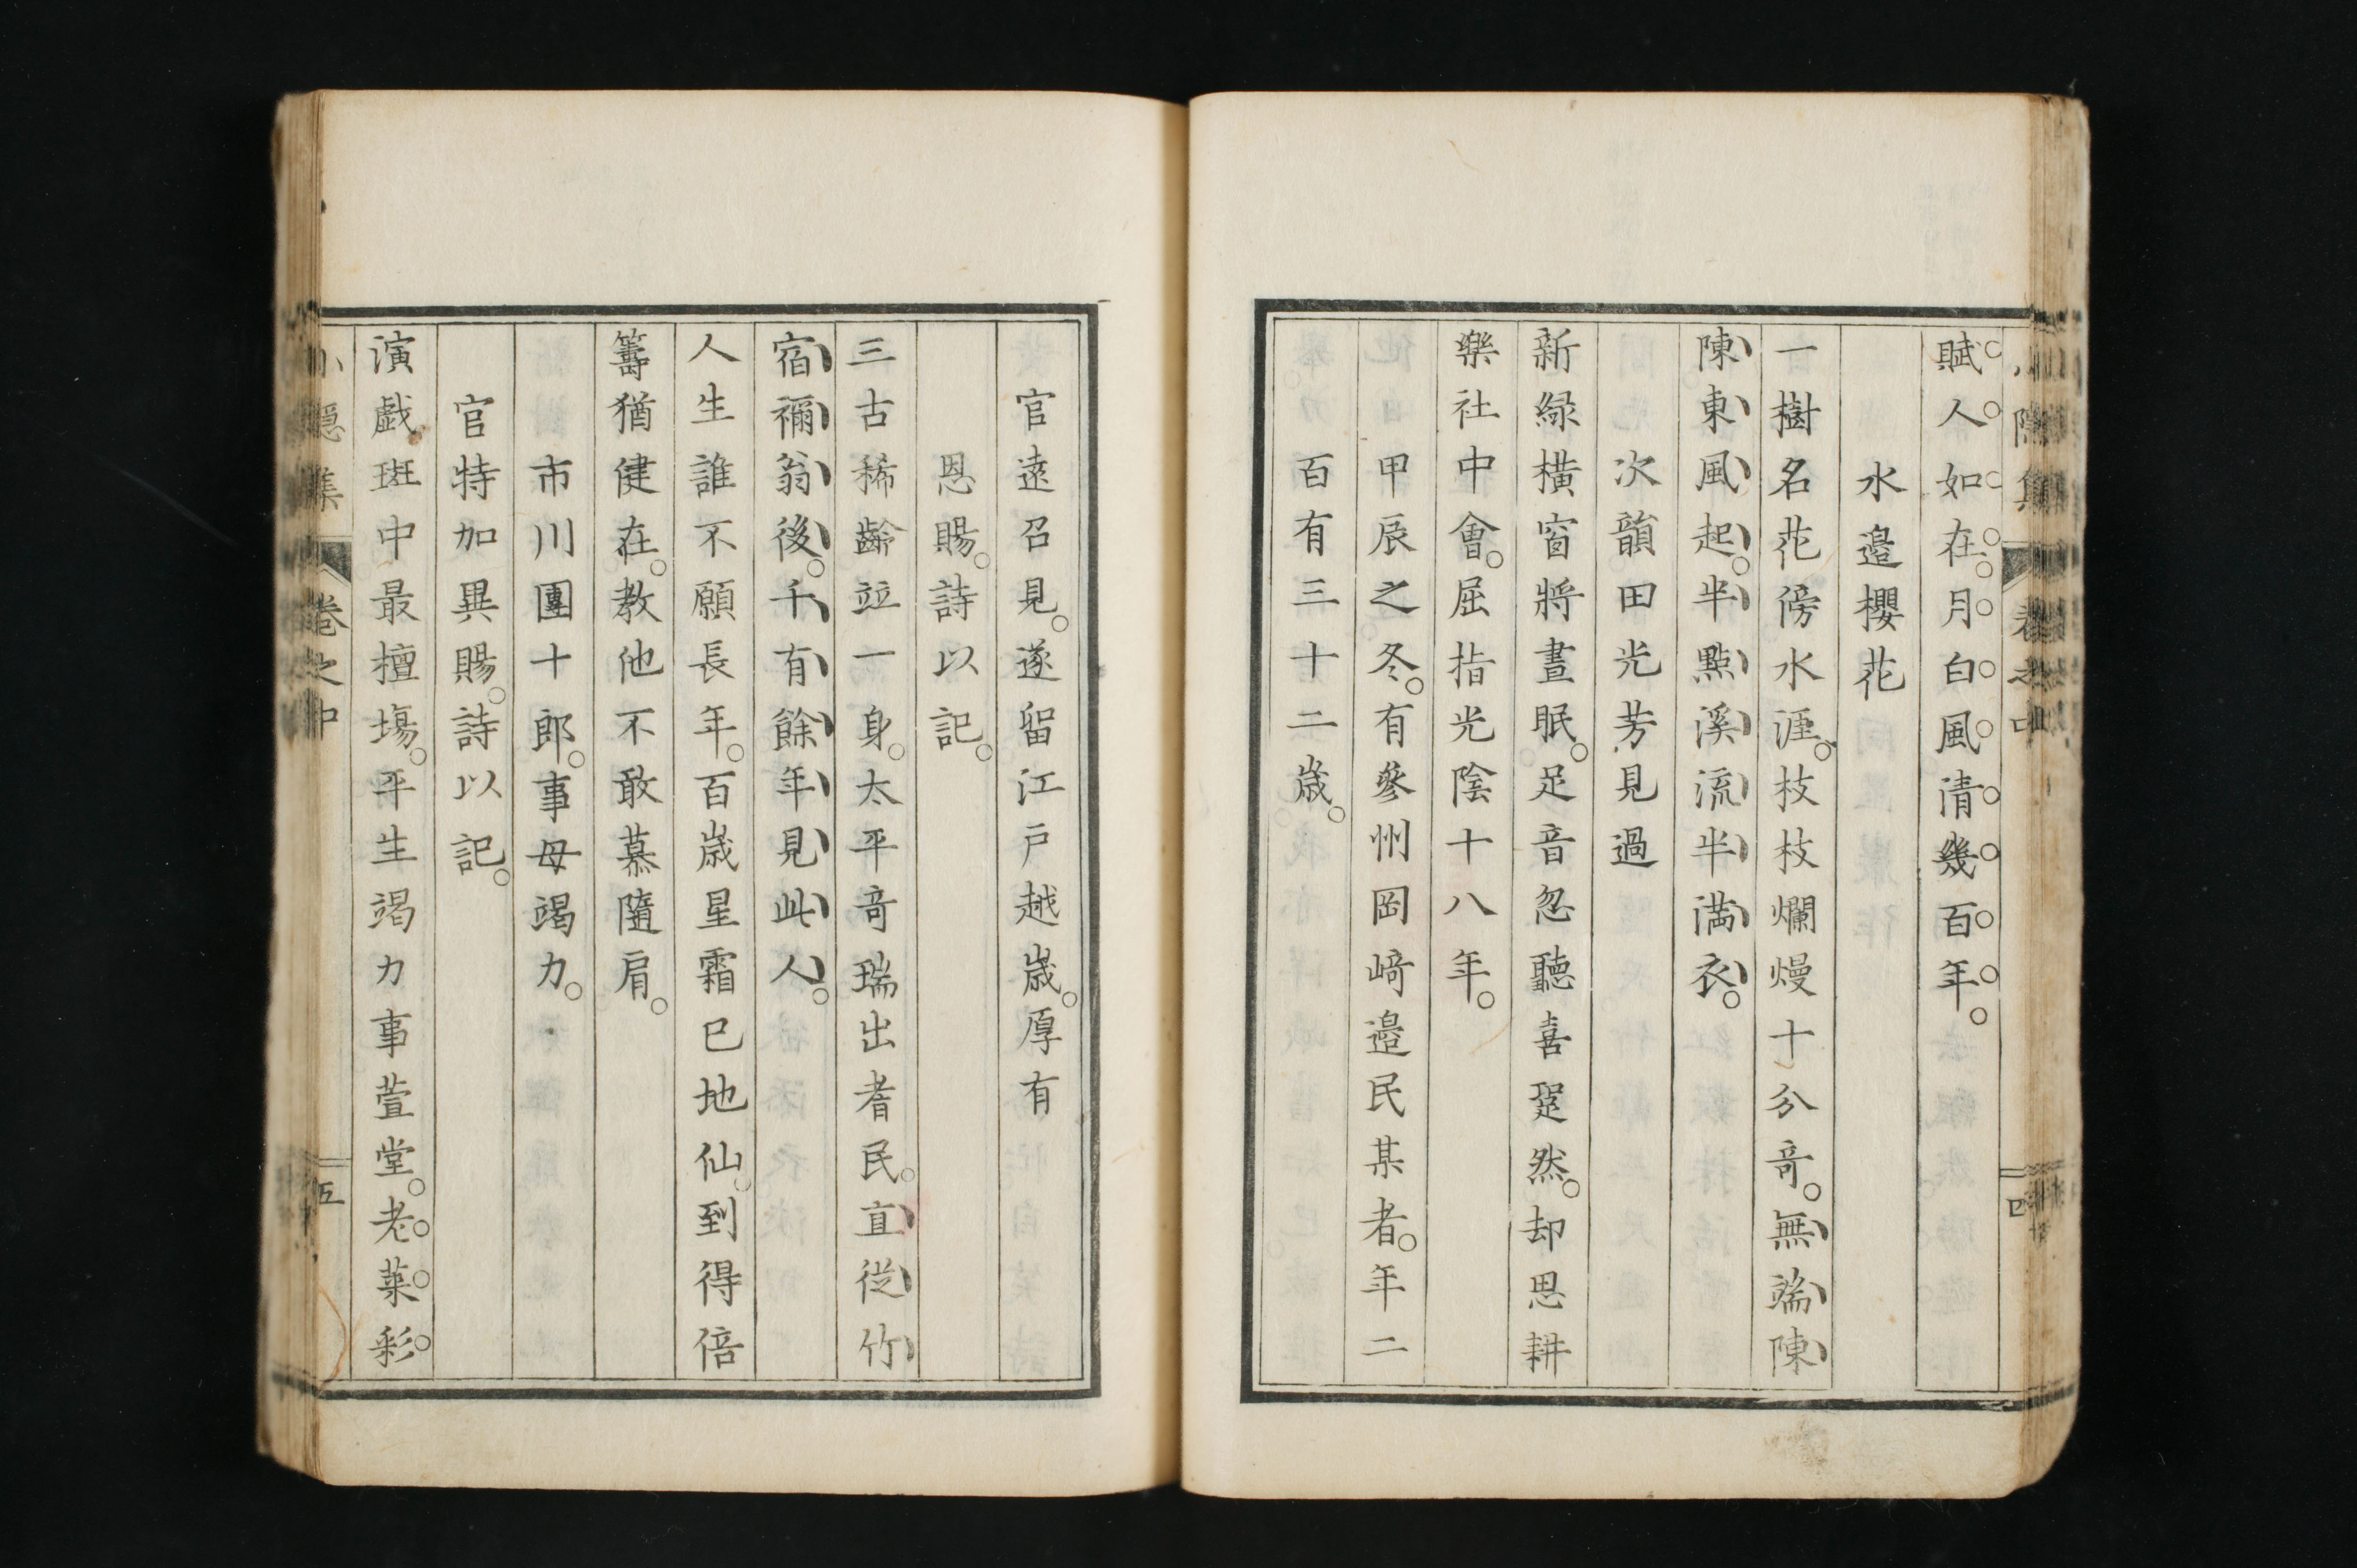 賦人如在。月白風清幾百年。
水邉櫻花
一樹名花傍水涯。枝枝爛熳十分奇。無端陳
陳東風起。半點溪流半満衣。
次韻田光芳見過
新緑横窗將晝眠。足音忽聽喜跫然。却思耕
樂社中會。屈指光陰十八年。
甲辰之冬。有參州岡﨑邉民某者。年二
百有三十二歳。
官遠召見。遂留江戸越歳。厚有
恩賜。詩以記。
三古稀齡竝一身。太平奇瑞出耆民。直從竹
宿禰翁後。千有餘年見此人。
人生誰不願長年。百歳星霜巳地仙。到得倍
籌猶健在。教他不敢慕隨肩。
市川團十郎。事母竭力。
官特加異賜。詩以記。
演戯斑中最檀塲。平生竭力事萱堂。老萊彩
小隱集 卷之中 五